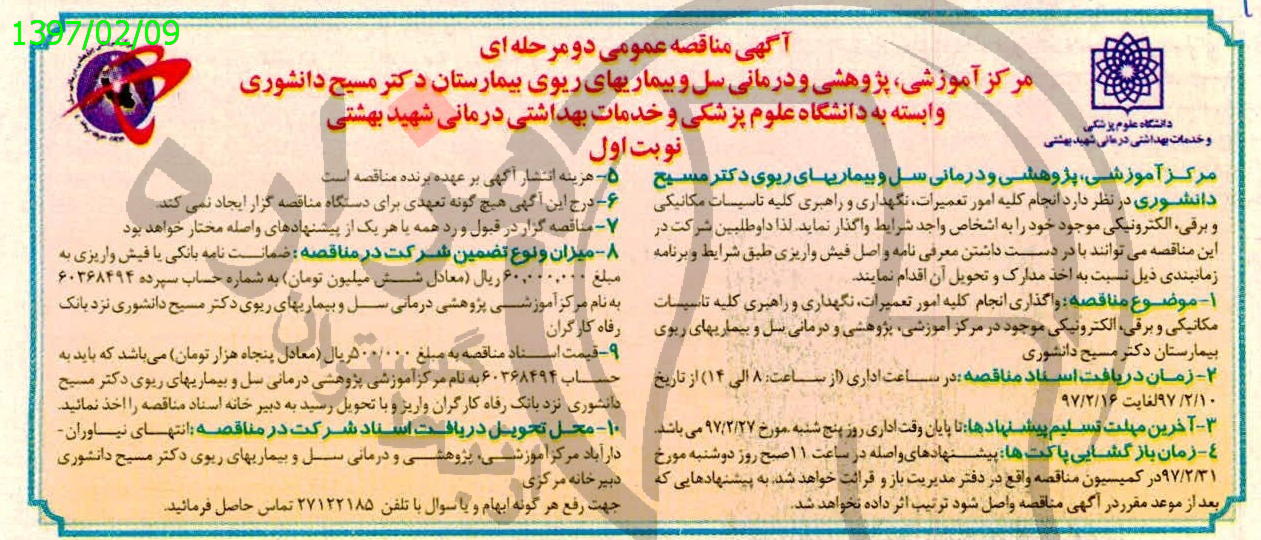 1397/02/09
آگهی مناقصه عمومی دو مرحله ای
مرکز آموزشی، پژوهشی و درمانی سل و بیماریهای ریوی بیمارستان دکتر مسیح دانشوری
وابسته به دانشگاه علوم پزشکی و خدمات بهداشتی درمانی شهید بهشتی
نوبت اول
دانشگاه علوم پزشکی
و خدمات بهداشتی درمانی شهید بهشتی
مرکز آموزشی، پژوهشی و درمانی سل و بیماریهای ریوی دکتر مسیح
دانشوری در نظر دارد انجام کلیه امور تعمیرات، نگهداری و راهبری کلیه تاسیسات مکانیکی
و برقی، الکترونیکی موجود خود را به اشخاص واجد شرایط واگذار نماید. لذا داوطلبین شرکت در
این مناقصه می توانند با در دست داشتن معرفی نامه و اصل فیش واریزی طبق شرایط و برنامه
زمانبندی ذیل نسبت به اخذ مدارک و تحویل آن اقدام نمایند.
۱-موضوع مناقصه: واگذاری انجام کلیه امور تعمیرات، نگهداری و راهبری کلیه تاسیسات
مکانیکی و برقی، الکترونیکی موجود در مرکز آموزشی، پژوهشی و درمانی سل و بیماریهای ریوی
بیمارستان دکتر مسیح دانشوری
۲-زمان دریافت اسناد مناقصه: در ساعت اداری (از ساعت: ۸ الی ۱۴) از تاریخ
۹۷/۲/۱۰ لغایت ۹۷/۲/۱۶
۳-آخرین مهلت تسلیم پیشنهادها: تا پایان وقت اداری روز پنج شنبه مورخ ۹۷/۲/۲۷ می باشد.
٤-زمان بازگشایی پاکت ها: پیشنهادهای واصله در ساعت ۱۱ صبح روز دوشنبه مورخ
۹۷/۲/۳۱ در کمیسیون مناقصه واقع در دفتر مدیریت باز و قرائت خواهد شد. به پیشنهادهایی که
بعد از موعد مقرر در آگهی مناقصه واصل شود ترتیب اثر داده نخواهد شد.
۵-هزینه انتشار آگهی بر عهده برنده مناقصه است
۶-درج این آگهی هیچ گونه تعهدی برای دستگاه مناقصه گزار ایجاد نمی کند.
۷-مناقصه گزار در قبول و رد همه یا هر یک از پیشنهادهای واصله مختار خواهد بود
۸-میزان و نوع تضمین شرکت در مناقصه: ضمانت نامه بانکی یا فیش واریزی به
مبلغ ۶۰,۰۰۰,۰۰۰ ریال (معادل شش میلیون تومان) به شماره حساب سپرده ۶۰۳۶۸۴۹۴
به نام مرکز آموزشی پژوهشی درمانی سل و بیماریهای ریوی دکتر مسیح دانشوری نزد بانک
رفاه کارگران
۹-قیمت اسناد مناقصه به مبلغ ۵۰۰/۰۰۰ ریال (معادل پنجاه هزار تومان) می باشد که باید به
حساب ۶۰۳۶۸۴۹۴ به نام مرکز آموزشی پژوهشی درمانی سل و بیماریهای ریوی دکتر مسیح
دانشوری نزد بانک رفاه کارگران واریز و با تحویل رسید به دبیر خانه اسناد مناقصه را اخذ نمائید.
۱۰-محل تحویل دریافت اسناد شرکت در مناقصه: انتهای نیاوران-
دارآباد مرکز آموزشی، پژوهشی و درمانی سل و بیماریهای ریوی دکتر مسیح دانشوری
دبیرخانه مرکزی
جهت رفع هر گونه ابهام و یا سوال با تلفن ۲۷۱۲۲۱۸۵ تماس حاصل فرمائید.